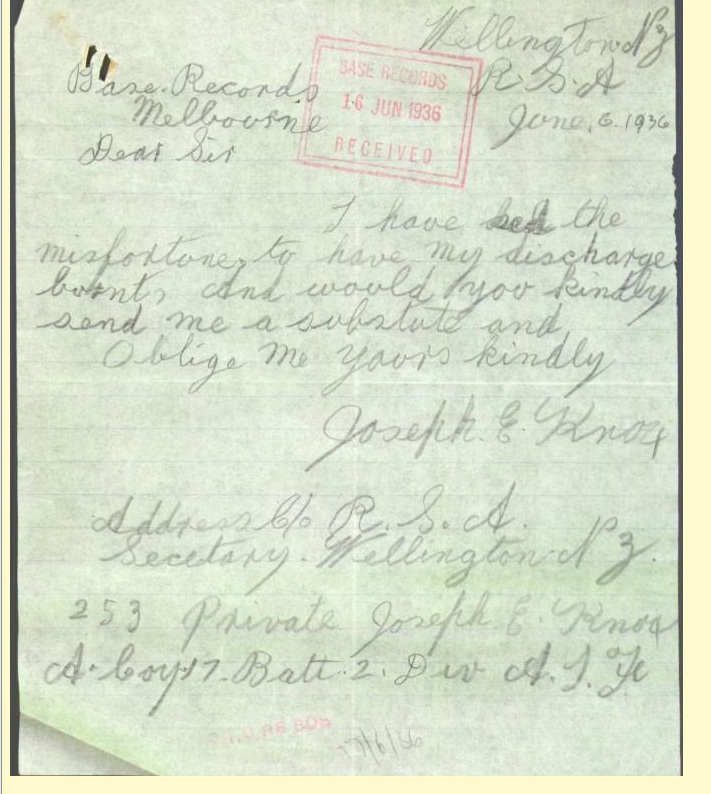 Wellington N Z
R. S. A
June, 6. 1936
Base. Records
Melbourne
BASE RECORDS
16 JUN 1936
RECEIVED
Dear Sir
I have had the
misfortune, to have my discharge
burnt, and would you kindly
send me a substute and
Oblige me yours kindly
Joseph. E. Knox
Address C/o R. S. A.
Secetary. Wellington N Z.
253 Private Joseph. E. Knox
A. Coy 17. Batt. 2. Div A. I. F
/6/36